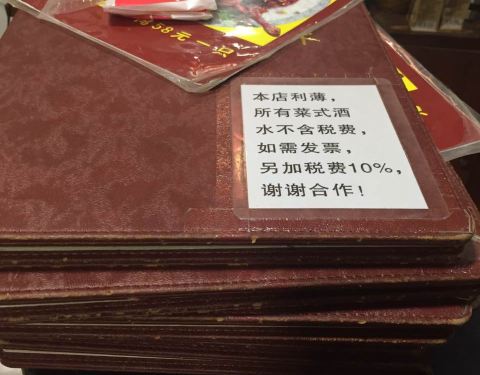 58元一只
本店利薄，
所有菜式酒
水不含税费，
如需发票，
另加税费10%，
谢谢合作！